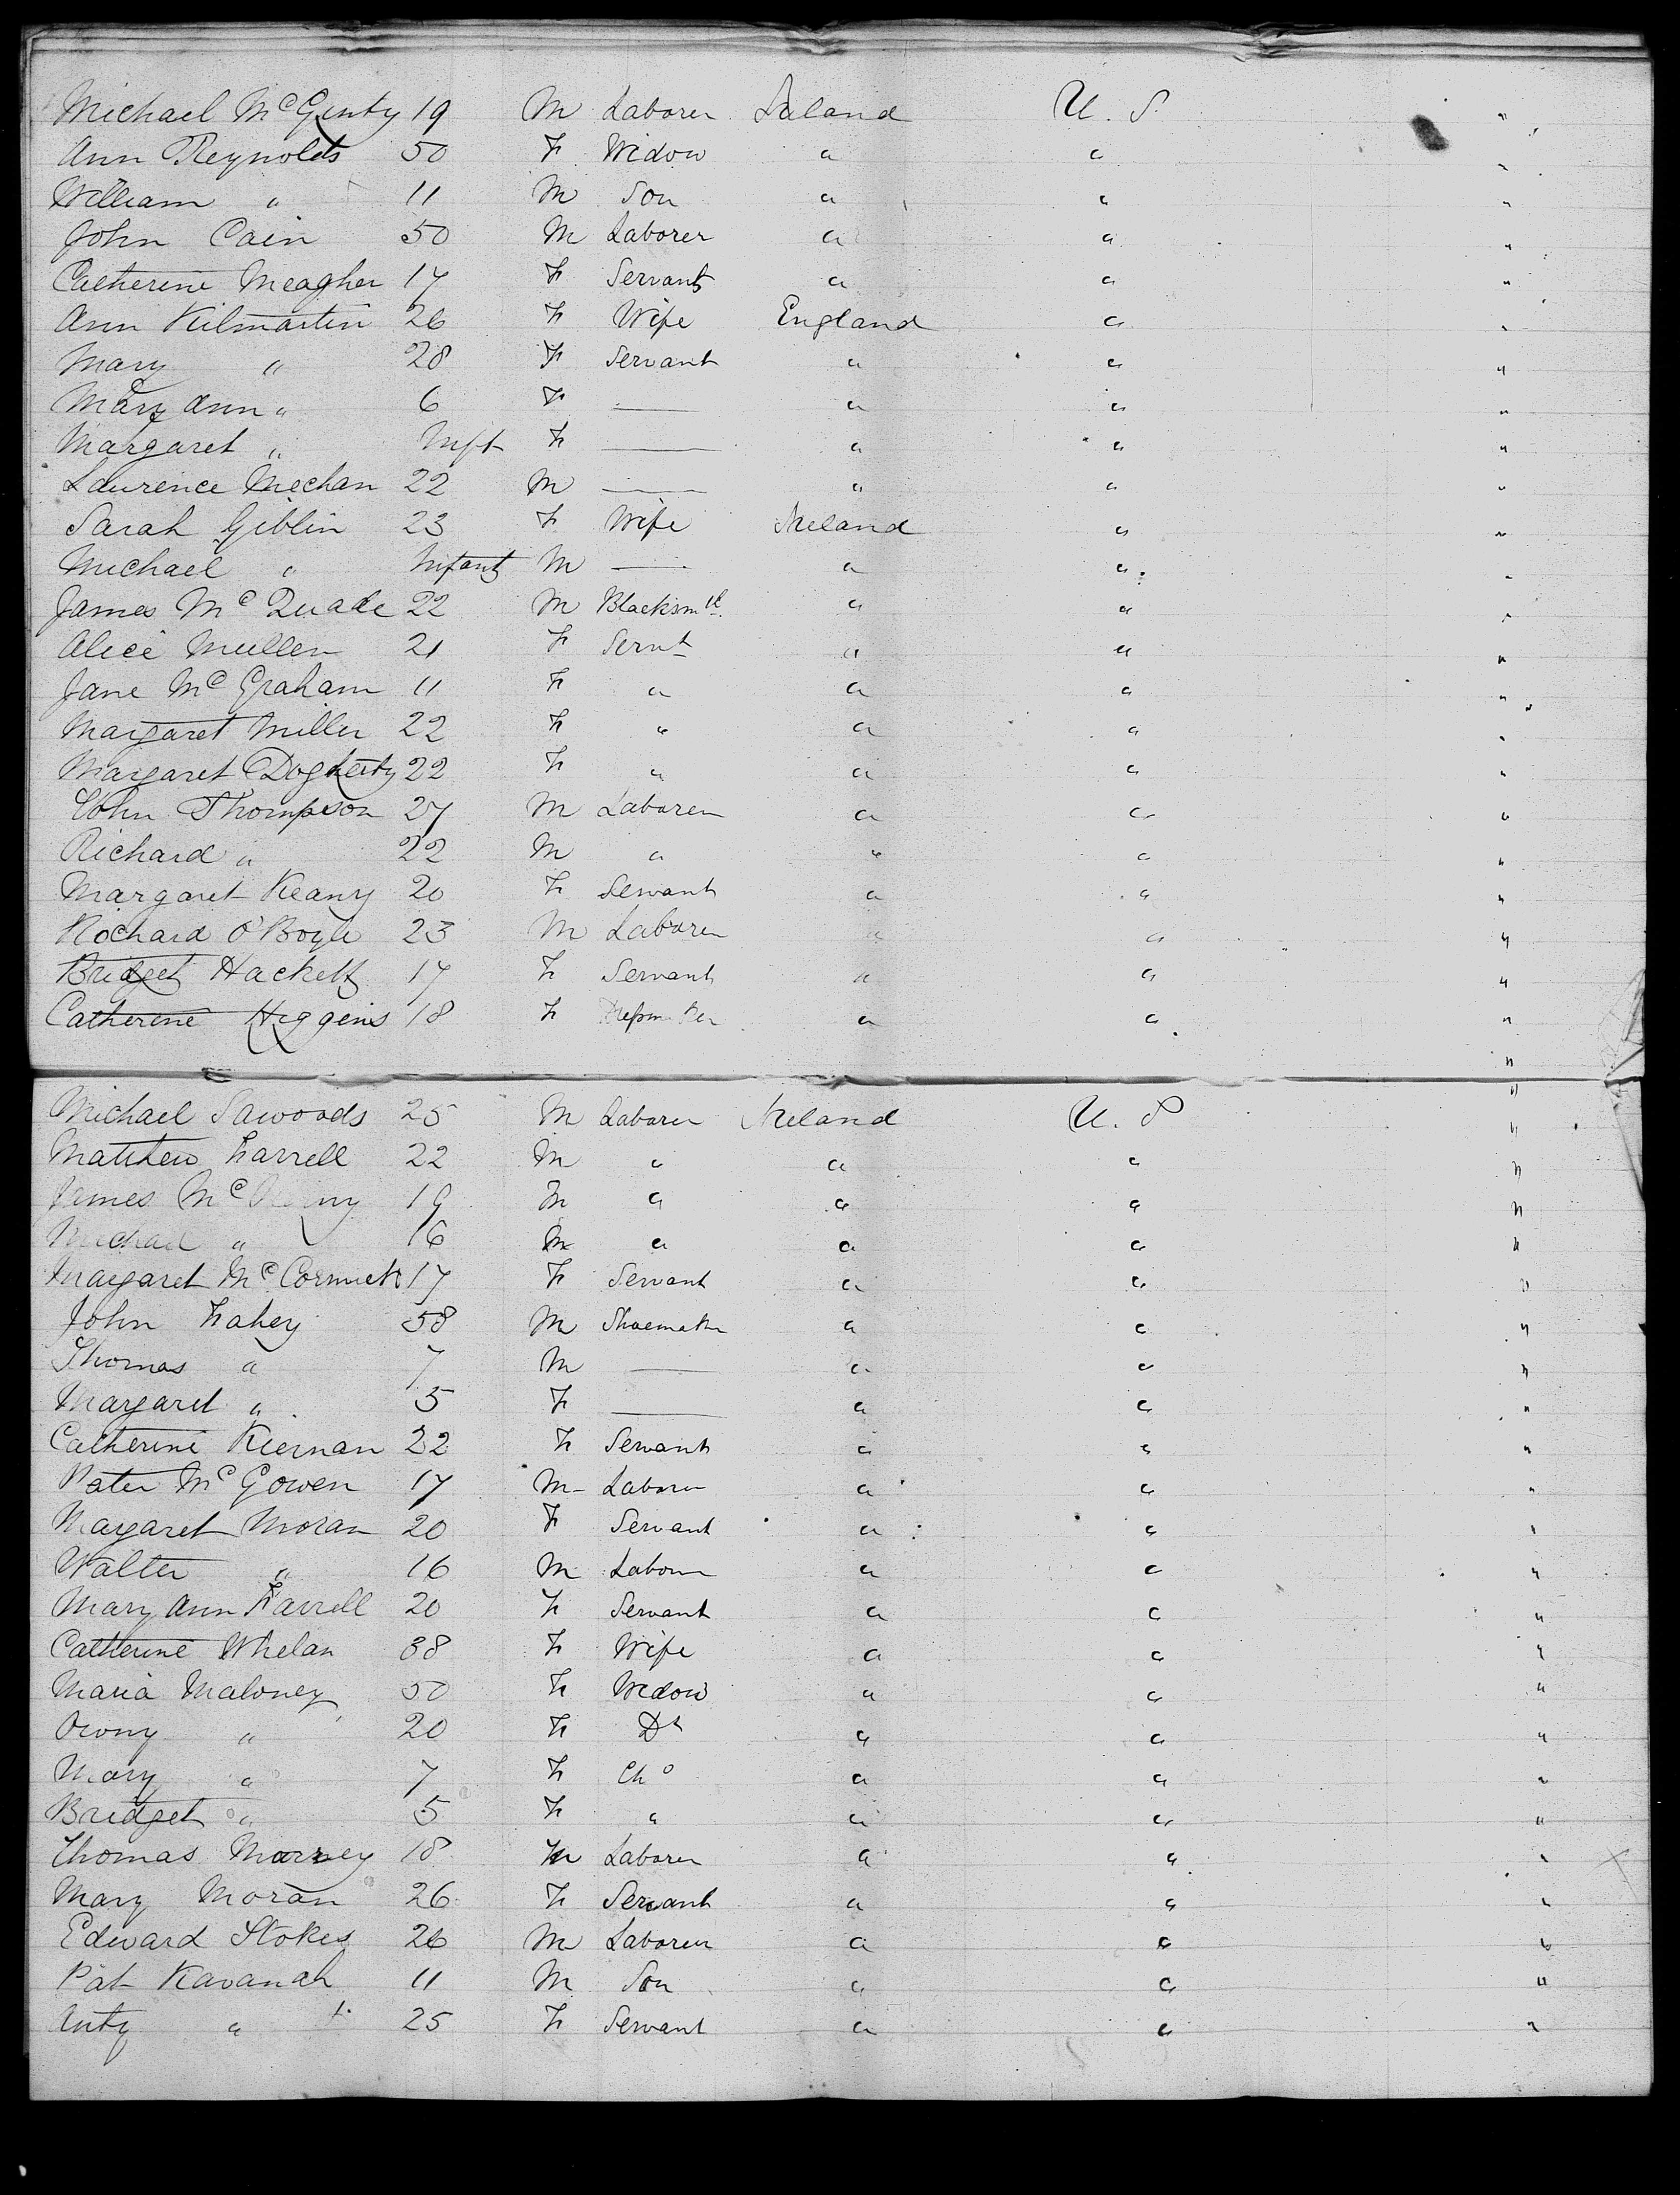 Michael McGinty 19 M Laborer Ireland U. S "
Ann Reynolds 50 F Widow " " "
William " 11 M Son " " "
John Cain 50 M Laborer " " "
Catherine Meagher 17 F Servant " " "
Ann Kilmartin 26 F Wife England " "
Mary " 28 F Servant " " "
Mary Ann " 6 F — " " "
Margaret " Inft F — " " "
Laurence Mechan 22 M — " " "
Sarah Giblin 23 F Wife Ireland " "
Michael " Infant M — " " "
James Mc Quade 22 M Blacksmth " " "
Alice Mullen 21 F Servt " " "
Jane Mc Graham 11 F " " " "
Margaret Miller 22 F " " " "
Margaret Dogherty 22 F " " " "
John Thompson 27 M Laborer " " "
Richard " 22 M " " " "
Margaret Keany 20 F Servant " " "
Richard O'Boyle 23 M Laborer " " "
Bridget Hackett 17 F Servant " " "
Catherine Higgins 18 F " " "
"
Michael Sawoods 25 M Laborer Ireland U. S "
Matthew Farrell 22 M " " " "
James 19 M " " " "
Michael " 16 M " " " "
Margaret McCormick 17 F Servant " " "
John Fahey 58 M Shoemaker " " "
Thomas " 7 M — " " "
Margaret " 5 F — " " "
Catherine Kiernan 22 F Servant " " "
Peter McGowen 17 M Laborer " " "
Margaret Moran 20 F Servant " " "
Walter " 16 M Laborer " " "
Mary Ann Farrell 20 F Servant " " "
Catherine Whelan 38 F Wife " " "
Maria Maloney 50 F Widow " " "
" 20 F Dt " " "
Mary " 7 F Cho " " "
Bridget " 5 F " " " "
Thomas 18 M Laborer " " "
Mary Moran 26 F Servant " " "
Edward Stokes 26 M Laborer " " "
Pat Kavanah 11 M Son " " "
Anty " 25 F Servant " " "